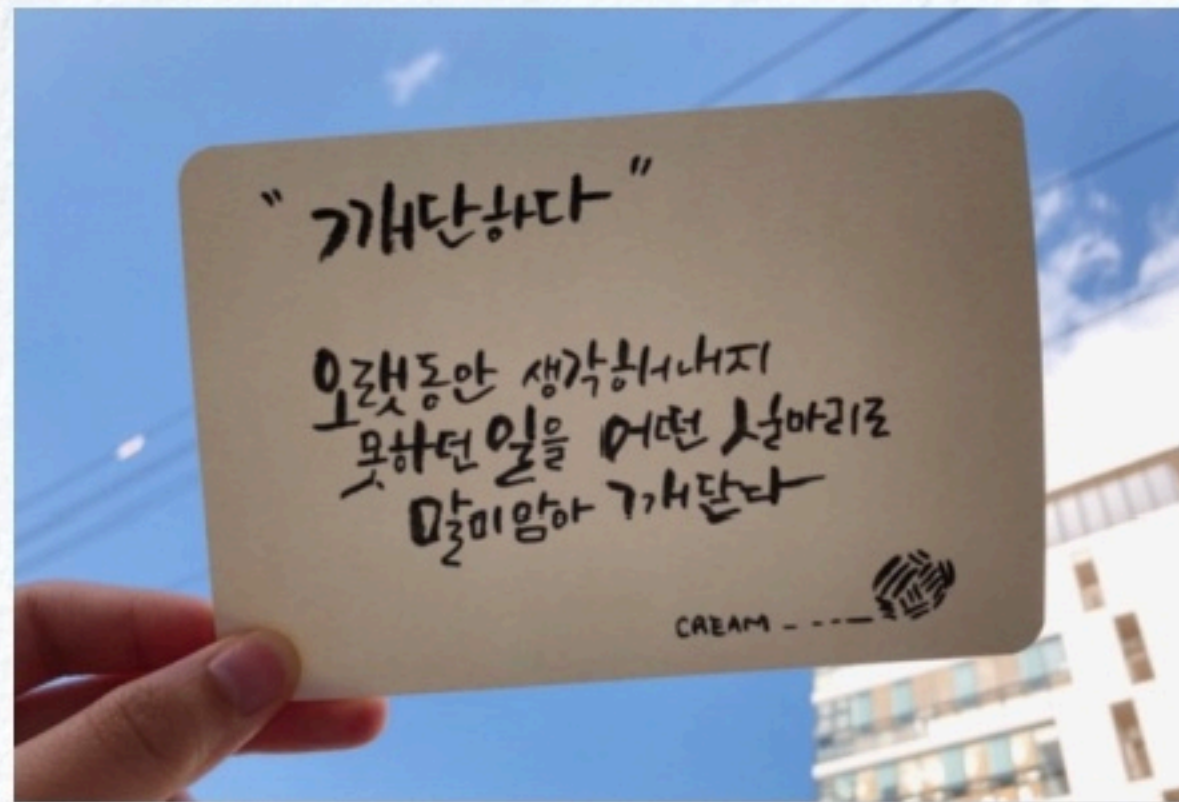 "깨단하다"
오랫동안 생각해내지
못하던 일을 어떤 실마리로
말미암아 깨닫다
CREAM